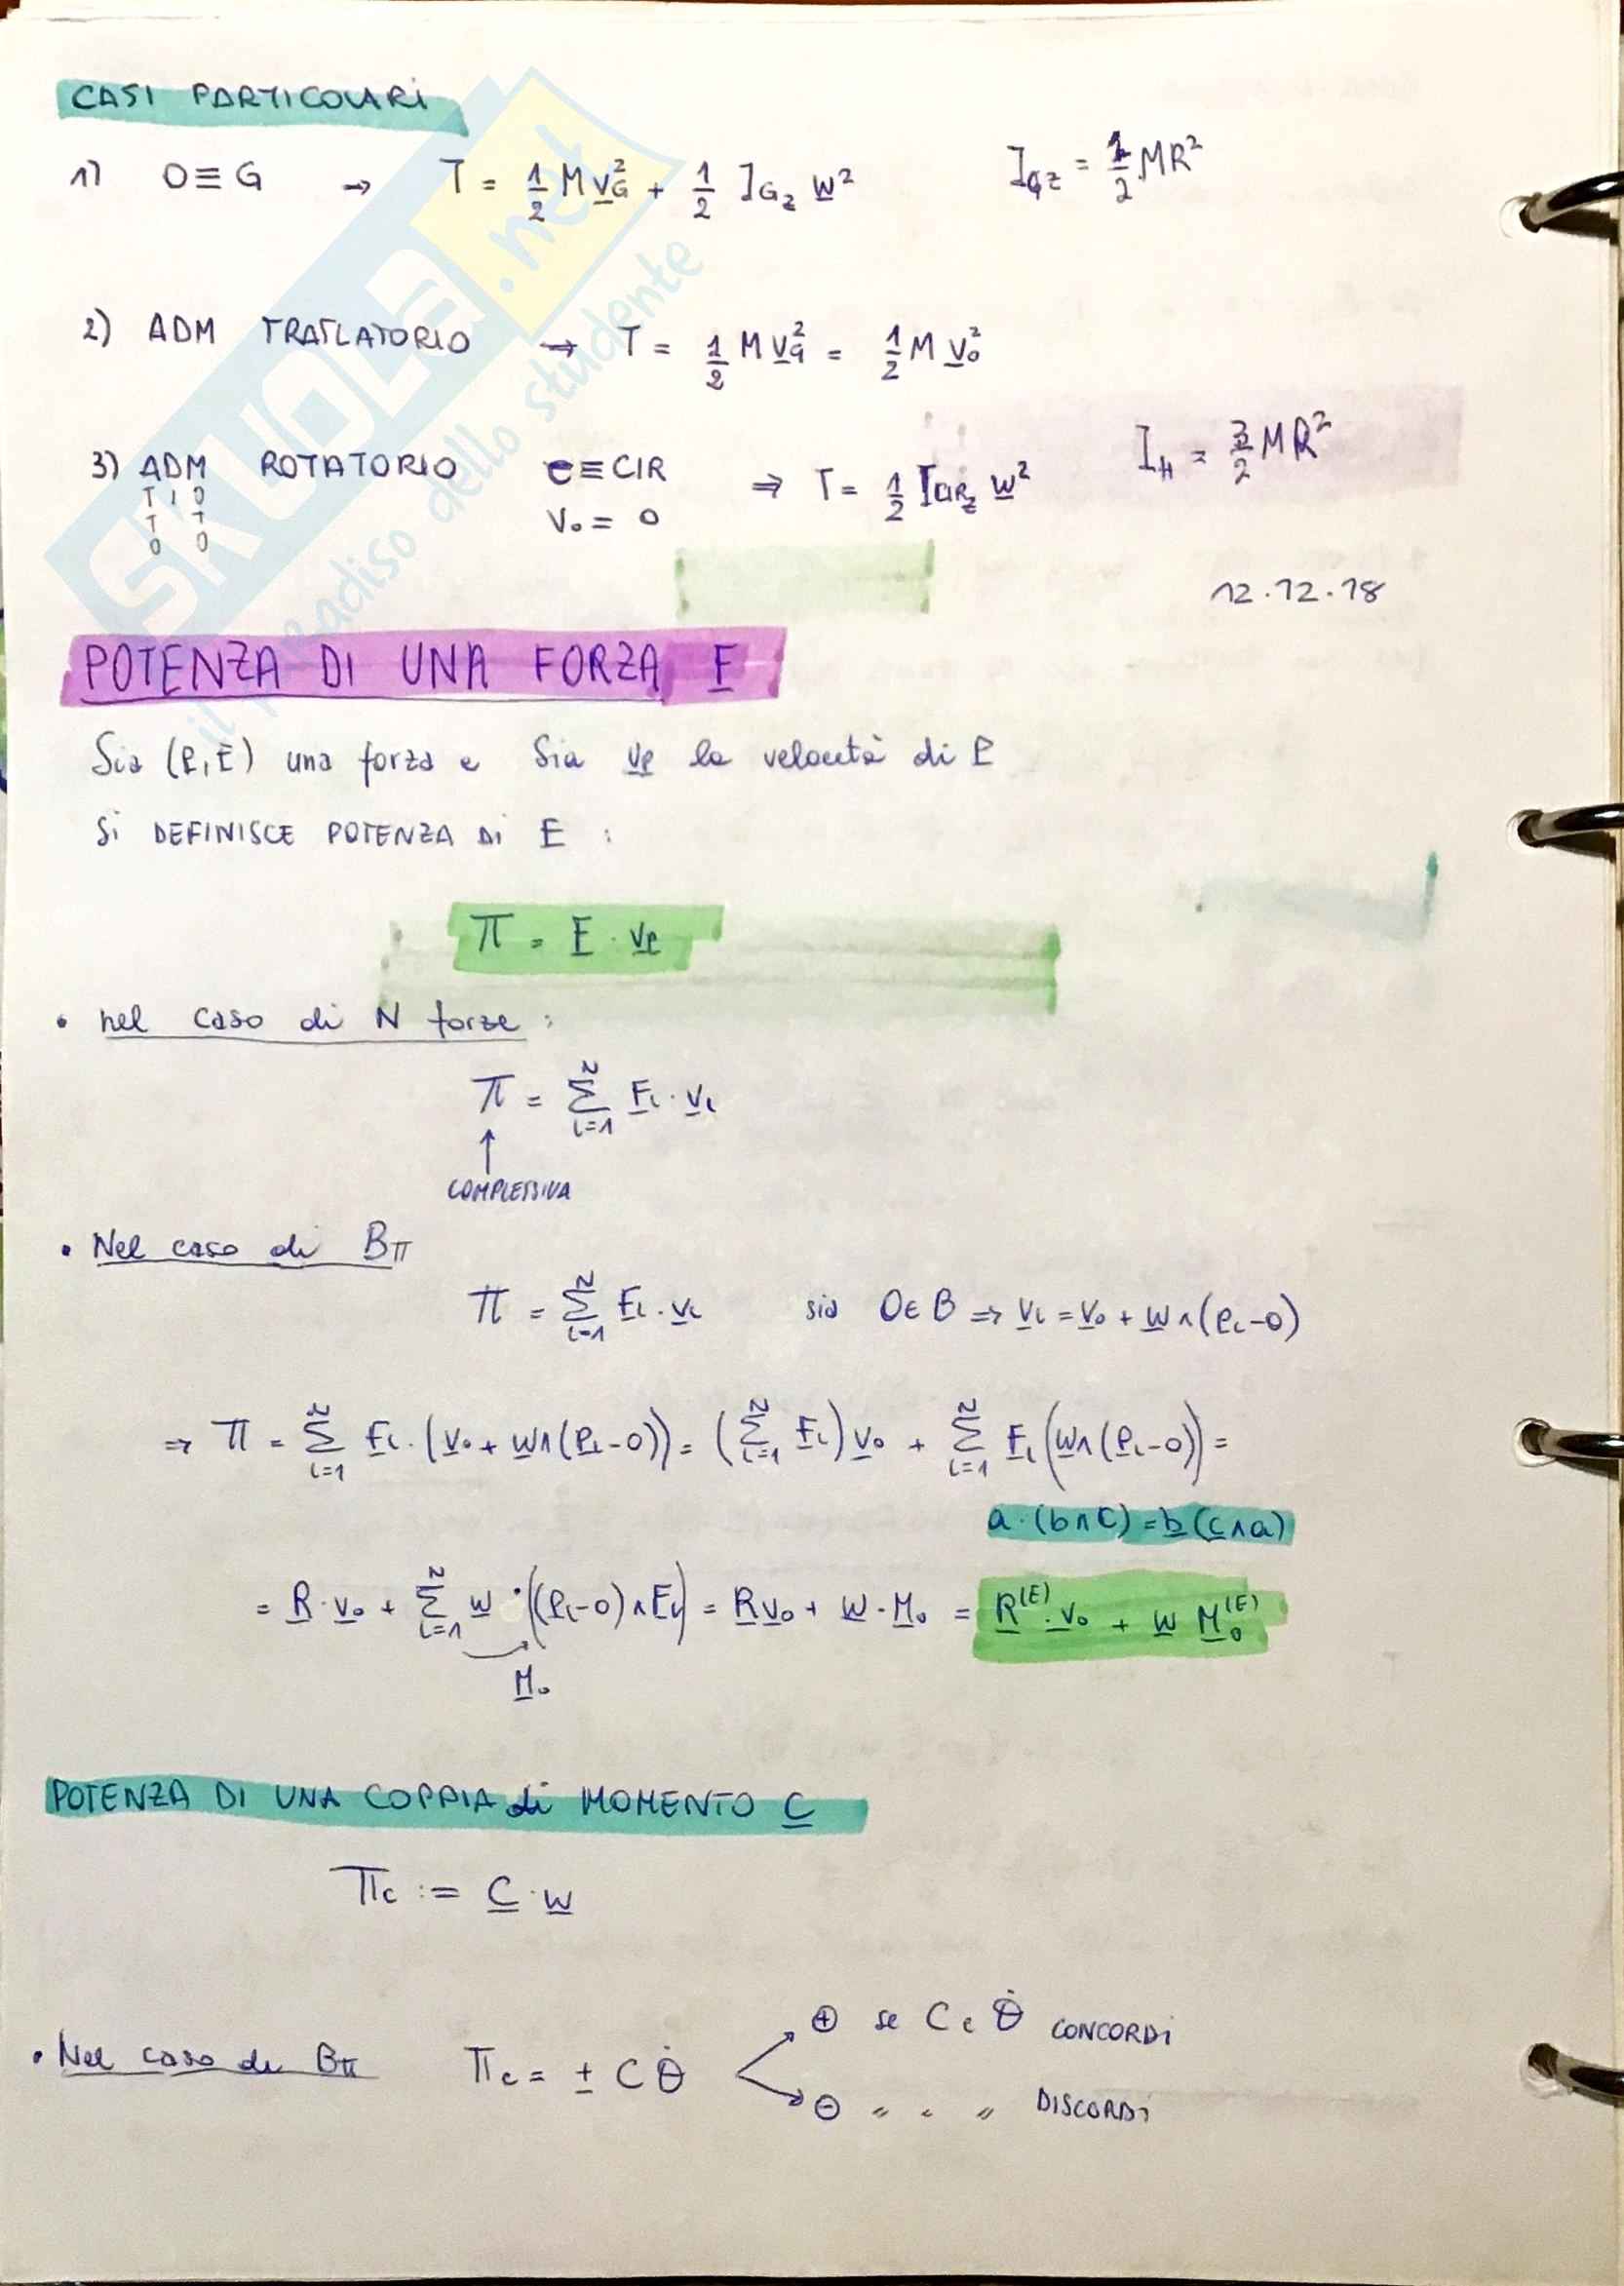 CASI PARTICOLARI
1) O≡G → T = 1/2 M v_G² + 1/2 I_Gz w² I_Gz = 1/2 MR²
2) ADM TRASLATORIO → T = 1/2 M v_G² = 1/2 M v_o²
3) ADM ROTATORIO e≡CIR ⇒ T = 1/2 I_CIRz w² I_H = 3/2 MR²
T I O
T T
O O
V_o = 0
12.12.18
POTENZA DI UNA FORZA F
Sia (P, F) una forza e Sia v_P la velocità di P
Si DEFINISCE POTENZA DI F :
π = F · v_P
• nel caso di N forze :
π = Σ_{i=1}^N F_i · v_i
↑
COMPLESSIVA
• Nel caso di Bπ
π = Σ_{i=1}^N F_i · v_i sia O∈B ⇒ v_i = v_o + w∧(P_i-O)
⇒ π = Σ_{i=1}^N F_i · (v_o + w∧(P_i-O)) = (Σ_{i=1}^N F_i) v_o + Σ_{i=1}^N F_i (w∧(P_i-O)) =
a·(b∧c) = b(c∧a)
= R·v_o + Σ_{i=1}^N w·((P_i-O)∧F_i) = R v_o + w·M_o = R^(E)·v_o + w M_o^(E)
M_o
POTENZA DI UNA COPPIA di MOMENTO C
π_c := C·w
⊕ se C e θ̇ CONCORDi
• Nel caso di Bπ π_c = ± C θ̇
⊖ " " " DISCORDi
SKUOLA.net
il paradiso dello studente